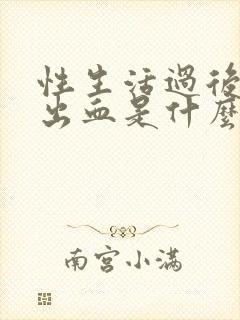 性生活過後
出血是什麼
南宮小滿